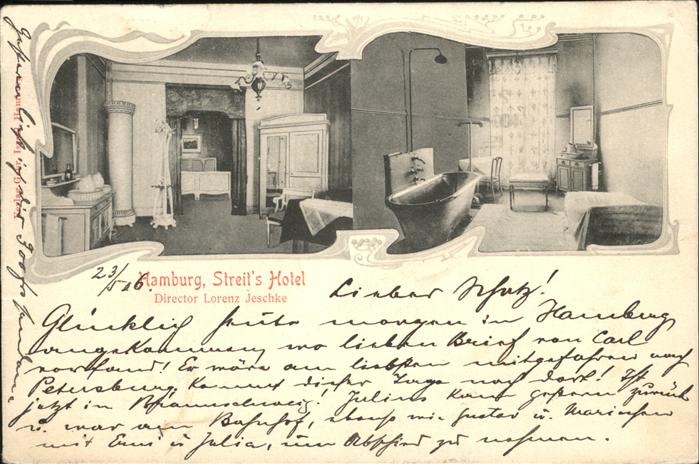 23/5 06.
Hamburg, Streit's Hotel
Director Lorenz Jeschke
Lieber Schatz!
Glücklich heute morgen in Hamburg
angekommen, wo lieben Brief von Carl
vorfand! Er wäre am liebsten mitgefahren nach
Petersburg, kommt dieser Tage nach dort! Ist
jetzt in Braunschweig! Julius kam gestern zurück
u. war am Bahnhof, ebenso wie Gustav u. Mariechen
mit Emi u Julia, um Abschied zu nehmen.
Gestern